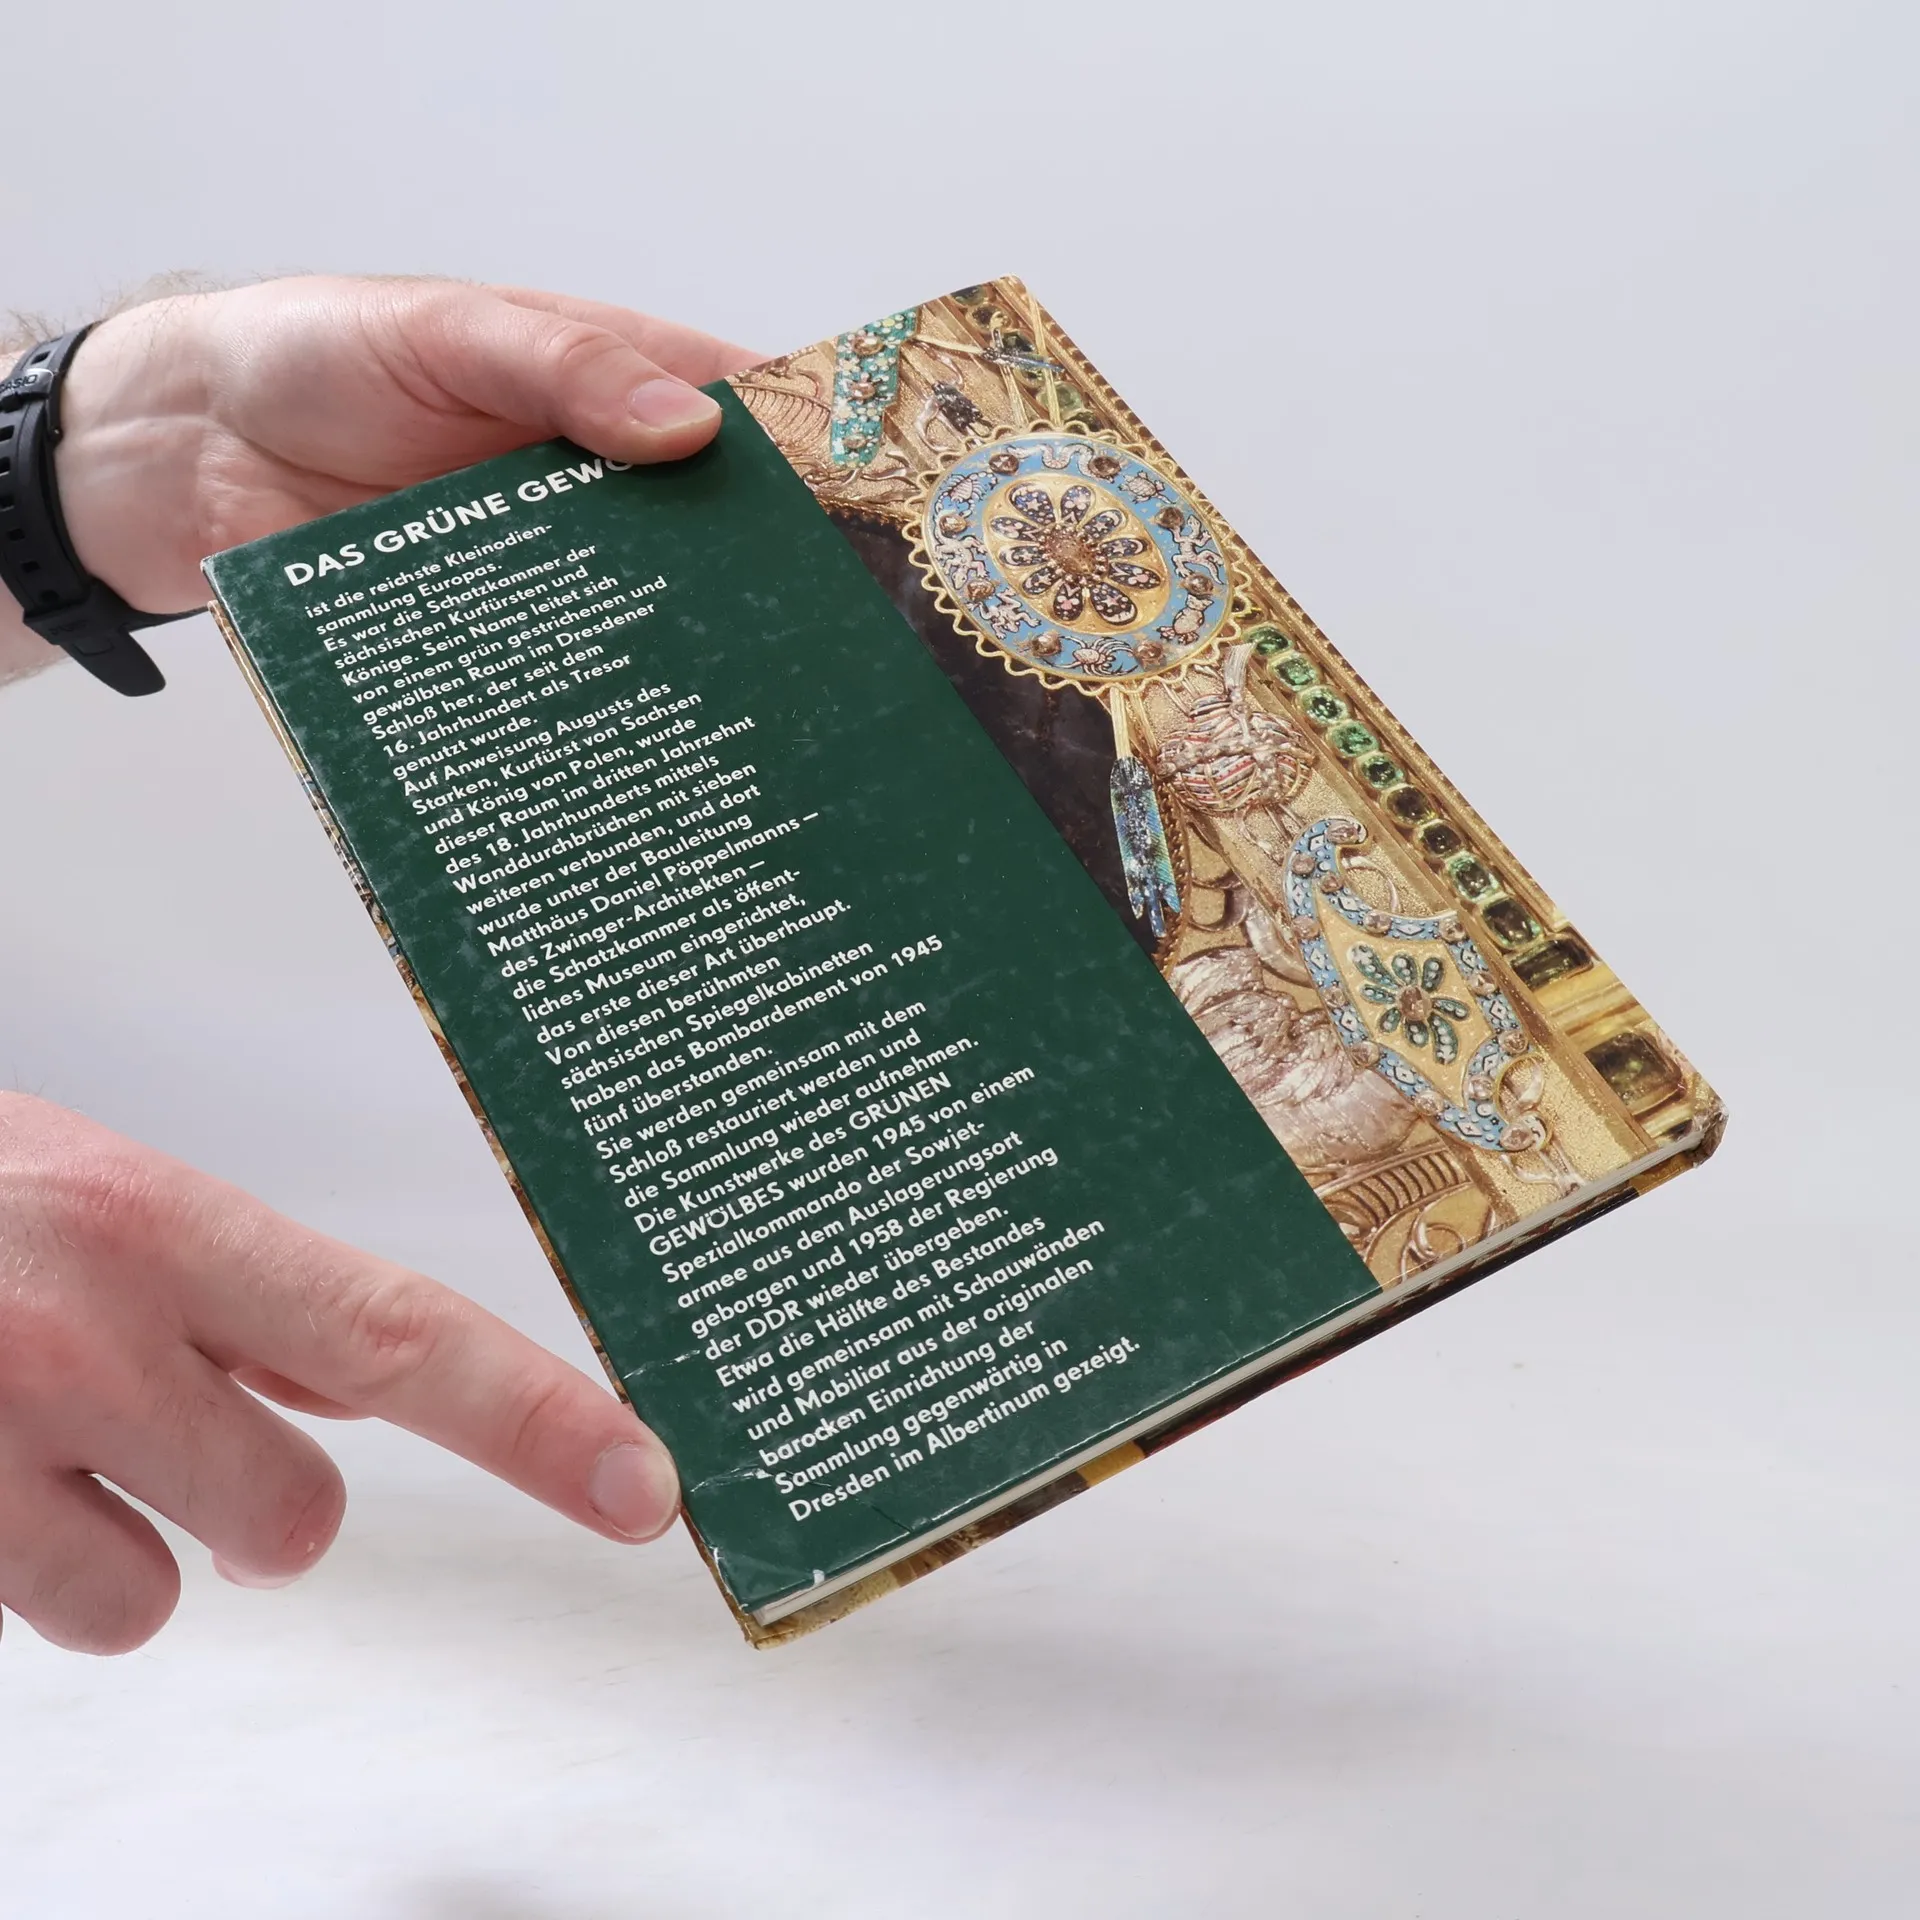 CASIO
DAS GRÜNE
ist die reichste Kleinodien-
sammlung Europas.
Es war die Schatzkammer der
sächsischen Kurfürsten und
Könige. Sein Name leitet sich
von einem grün gestrichenen und
gewölbten Raum im Dresdener
Schloß her, der seit dem
16. Jahrhundert als Tresor
genutzt wurde.
Auf Anweisung Augusts des
Starken, Kurfürst von Sachsen
und König von Polen, wurde
dieser Raum im dritten Jahrzehnt
des 18. Jahrhunderts mittels
Wanddurchbrüchen mit sieben
weiteren verbunden, und dort
wurde unter der Bauleitung
Matthäus Daniel Pöppelmanns –
des Zwinger-Architekten –
die Schatzkammer als öffent-
liches Museum eingerichtet,
das erste dieser Art überhaupt.
Von diesen berühmten
sächsischen Spiegelkabinetten
haben das Bombardement von 1945
fünf überstanden.
Sie werden gemeinsam mit dem
Schloß restauriert werden und
die Sammlung wieder aufnehmen.
Die Kunstwerke des GRÜNEN
GEWÖLBES wurden 1945 von einem
Spezialkommando der Sowjet-
armee aus dem Auslagerungsort
geborgen und 1958 der Regierung
der DDR wieder übergeben.
Etwa die Hälfte des Bestandes
wird gemeinsam mit Schauwänden
und Mobiliar aus der originalen
barocken Einrichtung der
Sammlung gegenwärtig in
Dresden im Albertinum gezeigt.